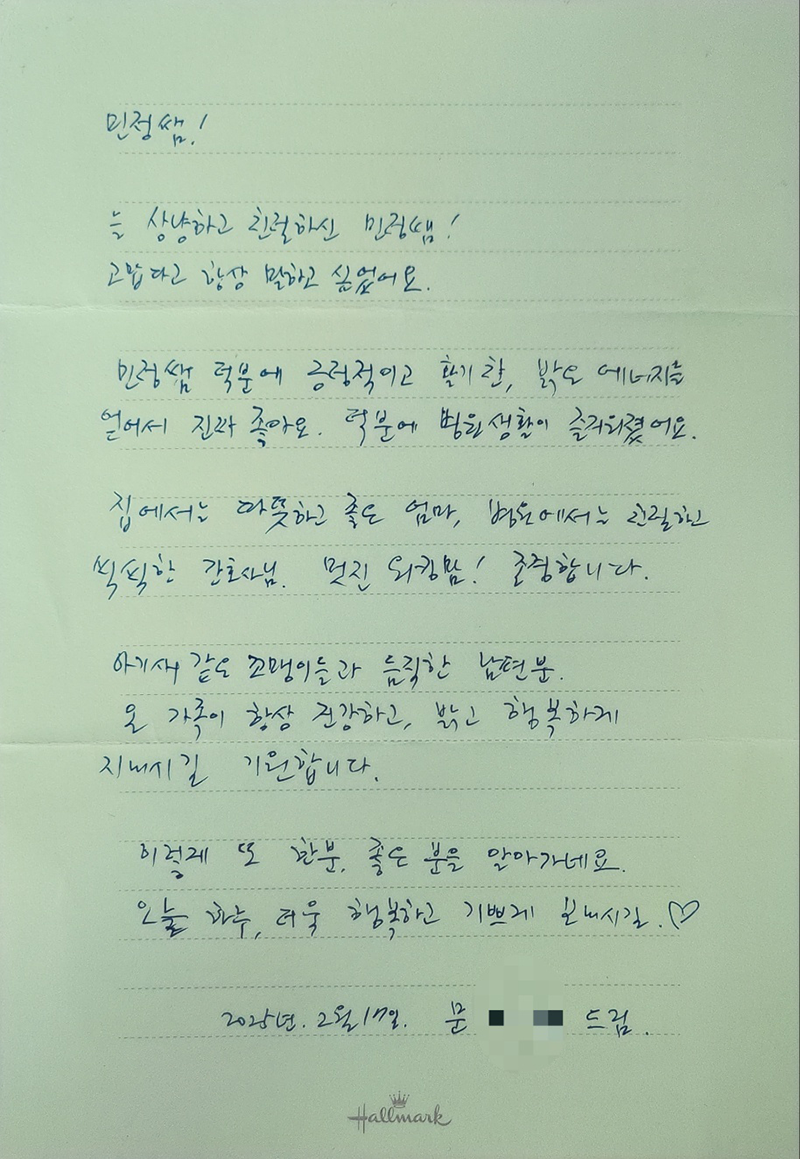 민정쌤!
늘 상냥하고 친절하신 민정쌤!
고맙다고 항상 말하고 싶었어요.
민정쌤 덕분에 긍정적이고 활기찬, 밝은 에너지를
얻어서 진짜 좋아요. 덕분에 병원생활이 즐거워졌어요.
집에서는 따뜻하고 좋은 엄마, 병원에서는 친절하고
씩씩한 간호사님. 멋진 워킹맘! 존경합니다.
아기새 같은 꼬맹이들과 듬직한 남편분.
온 가족이 항상 건강하고, 밝고 행복하게
지내시길 기원합니다.
이렇게 또 한분, 좋은 분을 알아가네요.
오늘 하루, 더욱 행복하고 기쁘게 보내시길. ♡
2025년. 2월 17일. 문 드림.
Hallmark